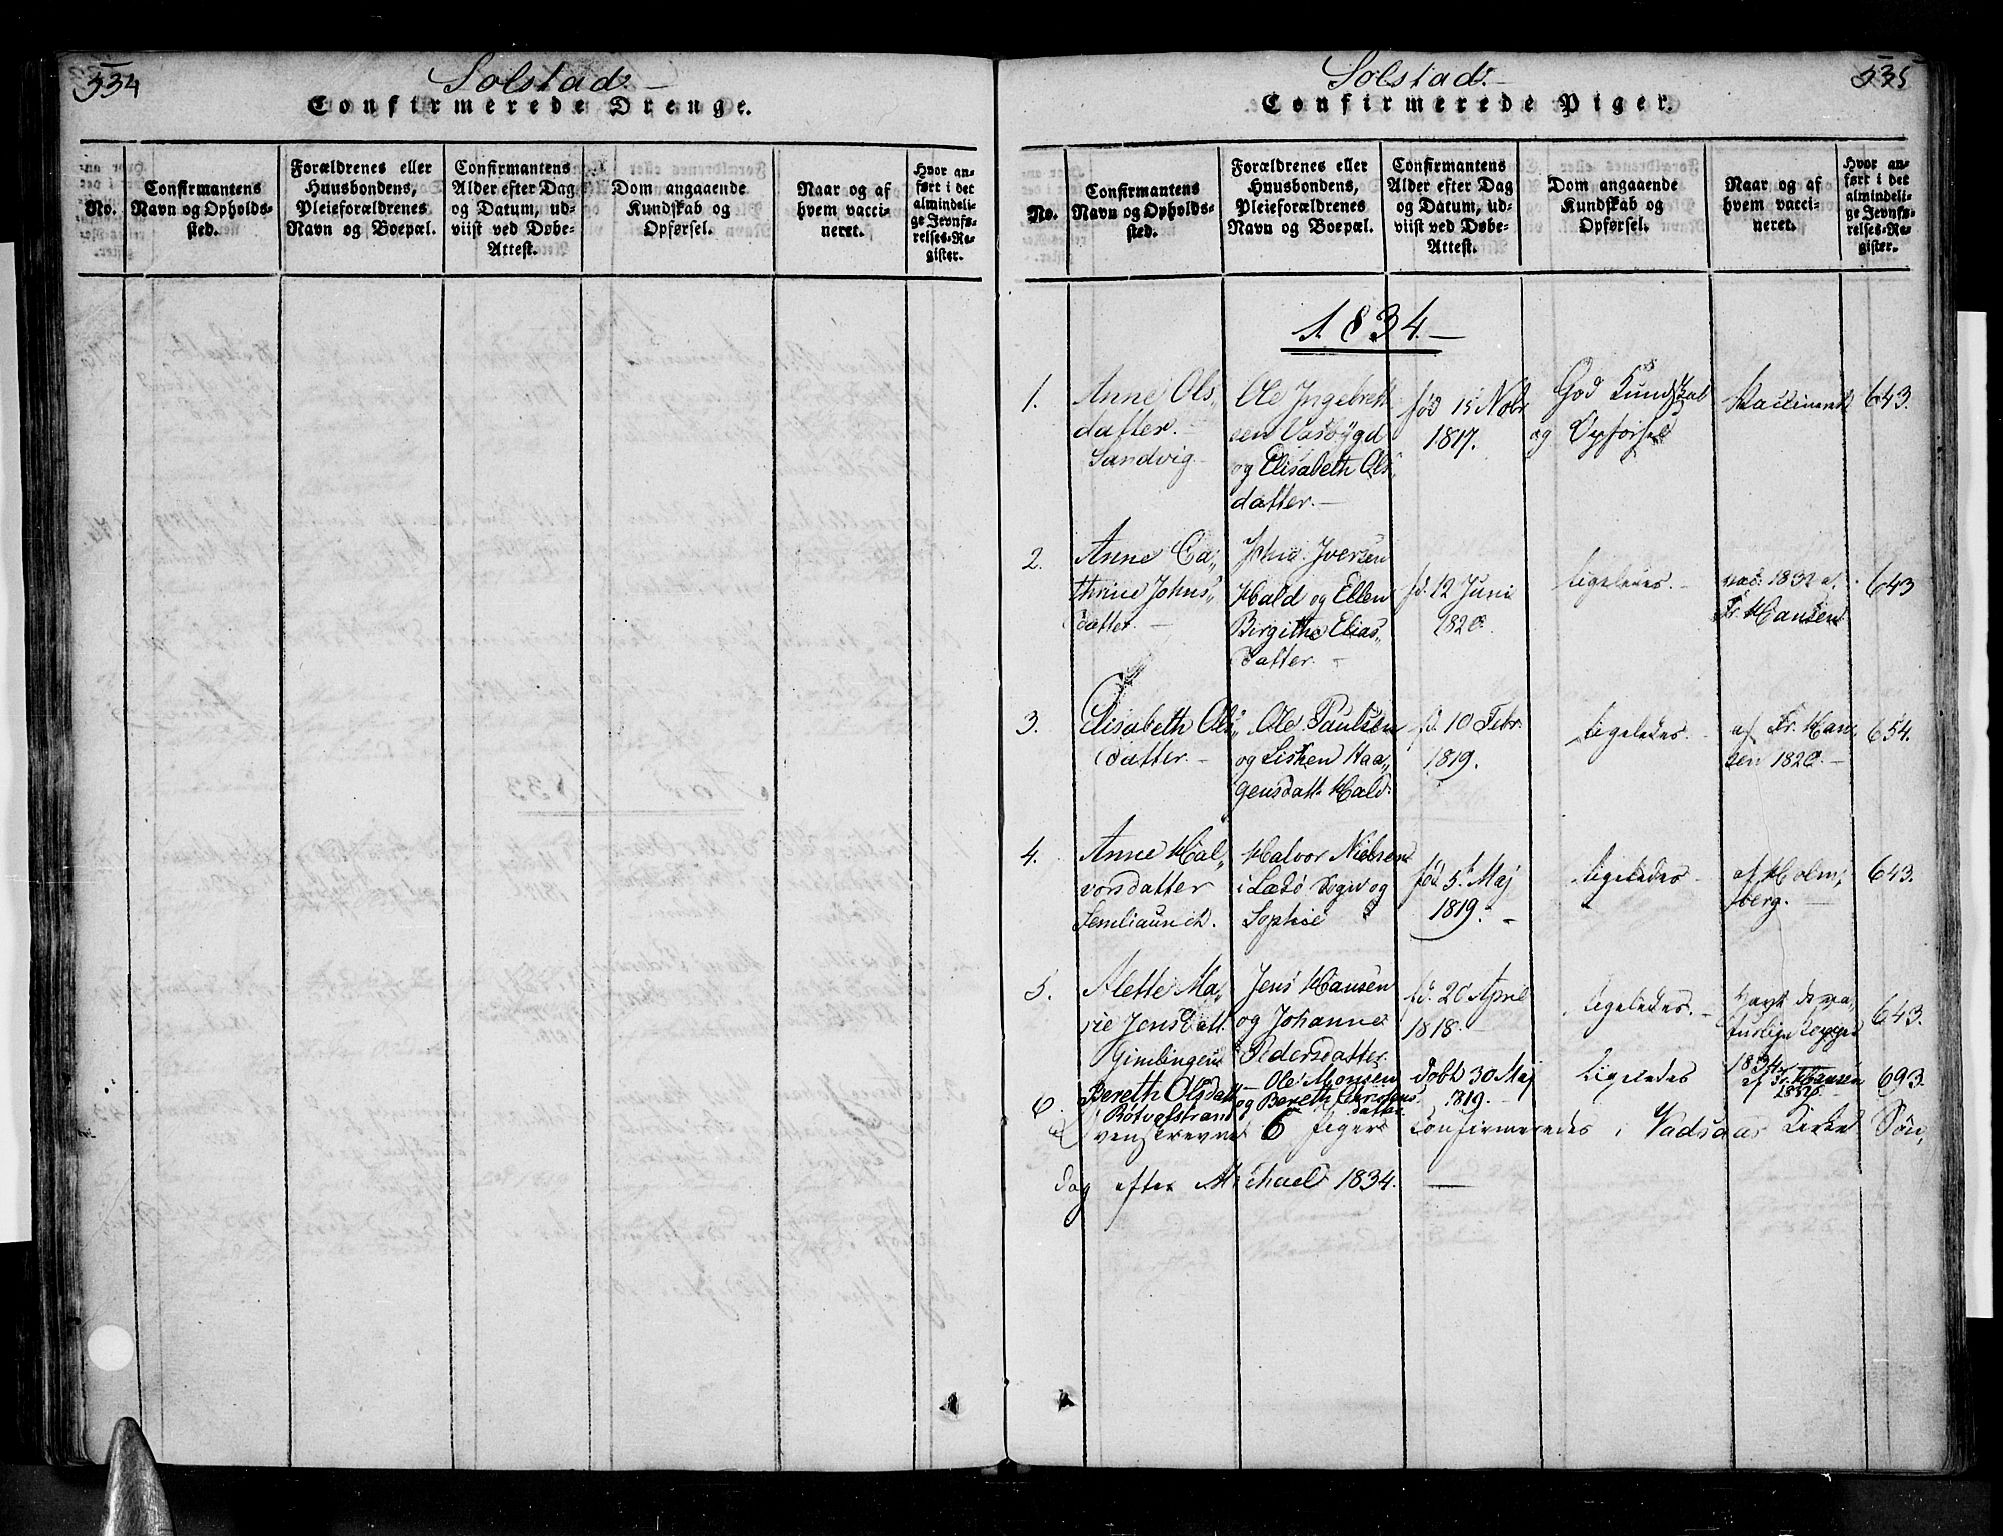 534
Solstad. —
Confirmerede Drenge.
No.
Confirmantens
Navn og Opholds-
sted.
Forældrenes eller
Huusbondens,
Pleieforældrenes
Navn og Boepæl.
Confirmantens
Alder efter Dag
og Datum, ud-
viist ved Døbe-
Attest.
Dom angaaende
Kundskab og
Opførsel.
Naar og af
hvem vacci-
neret.
Hvor an-
ført i det
almindeli-
ge Jevnfø-
relses-Re-
gister.
535
Solstad. —
Confirmerede Piger.
No.
Confirmantens
Navn og Opholds-
sted.
Forældrenes eller
Huusbondens,
Pleieforældrenes
Navn og Boepæl.
Confirmantens
Alder efter Dag
og Datum, ud-
viist ved Døbe-
Attest.
Dom angaaende
Kundskab og
Opførsel.
Naar og af
hvem vacci-
neret.
Hvor an-
ført i det
almindeli-
ge Jevnfø-
relses-Re-
gister.
1834. —
1.
Anne Ols„
datter. —
Sandvig —
Ole Ingebrett
sen Vasbygd
og Elisabeth Ols„
datter. —
fød 15 Nobr
1817.
God Kundskab
og Opførsel
Vaccineret
643.
2.
Anne Ca„
thrine Johns„
datter. —
John Iversen
Hald og Ellen
Birgithe Elias„
datter. —
fd. 12 Juni
1820.
ligeledes. —
vac: 1832 a.
Fr. Hansen
643
3.
Elisabeth Ols„
datter. —
Ole Paulsen
og Lisken Haa„
gensdatt. Hald.
fd. 10 Febr.
1819.
ligeledes. —
af Fr. Han„
sen 1820. —
654.
4.
Anne Hal„
vorsdatter
Halvor Nielsen
i Lødö Sogn og
Sophie
fød. 5t Maj
1819. —
ligeledes —
af Holm„
berg. —
643.
5.
Alette Ma„
rie Jensdatt.
Gimlingen
Jens Hansen
og Johanne
Pedersdatter.
fd. 20 April
1818. —
ligeledes. —
havt de na„
turlige Kopper
643.
6.
Bereth Olsdatt
— Ole Monsen
og Bereth Christens
datter
døbt 30 Maj
1819. —
Ligeledes
1834
af Fr. Hansen
693.
6 Piger Confirmeredes i Vadsøes Kirke Søn„
dag efter Michael 1834. —